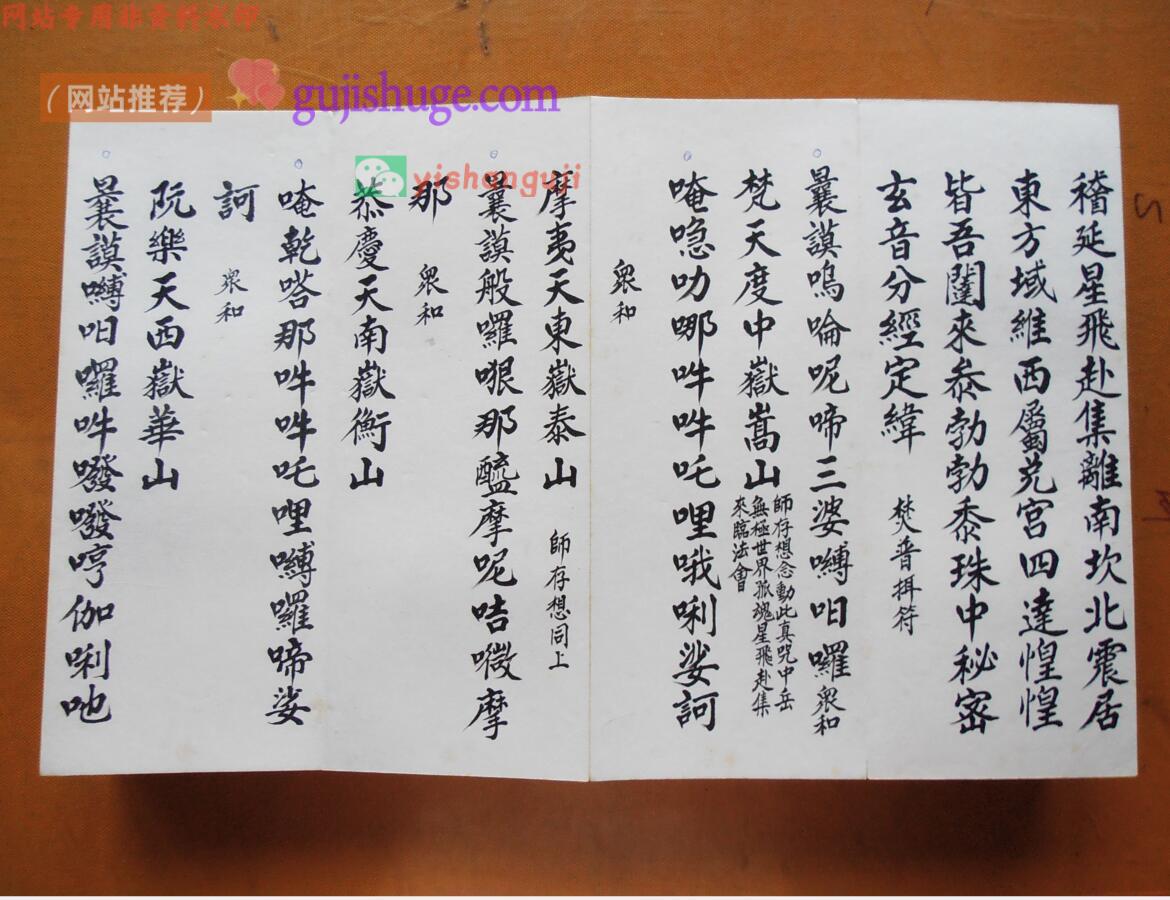 网站专用非资料水印
（网站推荐）
gujishuge.com
yishanguji
稽延星飛赴集離南坎北震居
東方域維西屬兑宮四達惶惶
皆吾闥來叅勃勃黍珠中秘密
玄音分經定緯 焚普揖符
曩謨嗚唵呢啼三婆嚩呬囉 衆和
梵天度中嶽嵩山 師存想念動此真咒中岳
無極世界孤魂星飛赴集
來臨法會
唵唸叻哪吽吽吒哩哦唎娑訶
衆和
摩夷天東嶽泰山 師存想同上
曩謨般囉哏那醯摩呢咭㗲摩
那 衆和
恭慶天南嶽衡山
唵乾嗒那吽吽吒哩嚩囉啼娑
訶 衆和
阮樂天西嶽華山
曩謨嚩呬囉吽㗶㗶哼伽唎吔